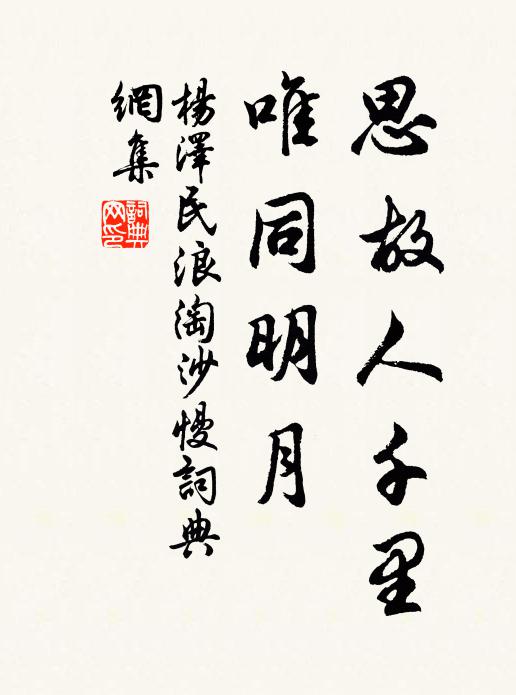 思故人千里
唯同明月
楊澤民浪淘沙慢詞典
網集
詞典
网印